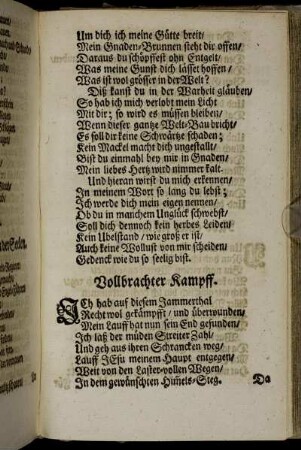 Um dich ich meine Gütte breit/
Mein Gnaden-Brunnen steht dir offen/
Daraus du schöpffest ohn Entgelt/
Was meine Gunst dich lässet hoffen/
Was ist wol grösser in der Welt?
Diß kanst du in der Warheit gläuben/
So hab ich mich verlobt mein Licht
Mit dir; so wird es müssen bleiben/
Wenn dieser gantze Welt-Bau bricht/
Es soll dir keine Schwärtze schaden;
Kein Mackel macht dich ungestallt/
Bist du einmahl bey mir in Gnaden/
Mein liebes Hertz wird nimmer kalt.
Und hieran wirst du mich erkennen/
In meinem Wort so lang du lebst;
Ich werde dich mein eigen nennen/
Ob du in manchem Unglück schwebst/
Soll dich dennoch kein herbes Leiden/
Kein Ubelstand/ wie groß er ist/
Auch keine Wollust von mir scheiden/
Gedenck wie du so seelig bist.
Vollbrachter Kampff.
ICh hab auf diesem Jammerthal
Recht wol gekämpfft/ und überwunden/
Mein Lauff hat nun sein End gefunden/
Ich laß der müden Streiter Zahl/
Und geh aus ihren Schrancken weg/
Lauff JEsu meinem Haupt entgegen/
Weit von den Laster-vollen Wegen/
In dem gewünschten Him̃els-Steg.
Da